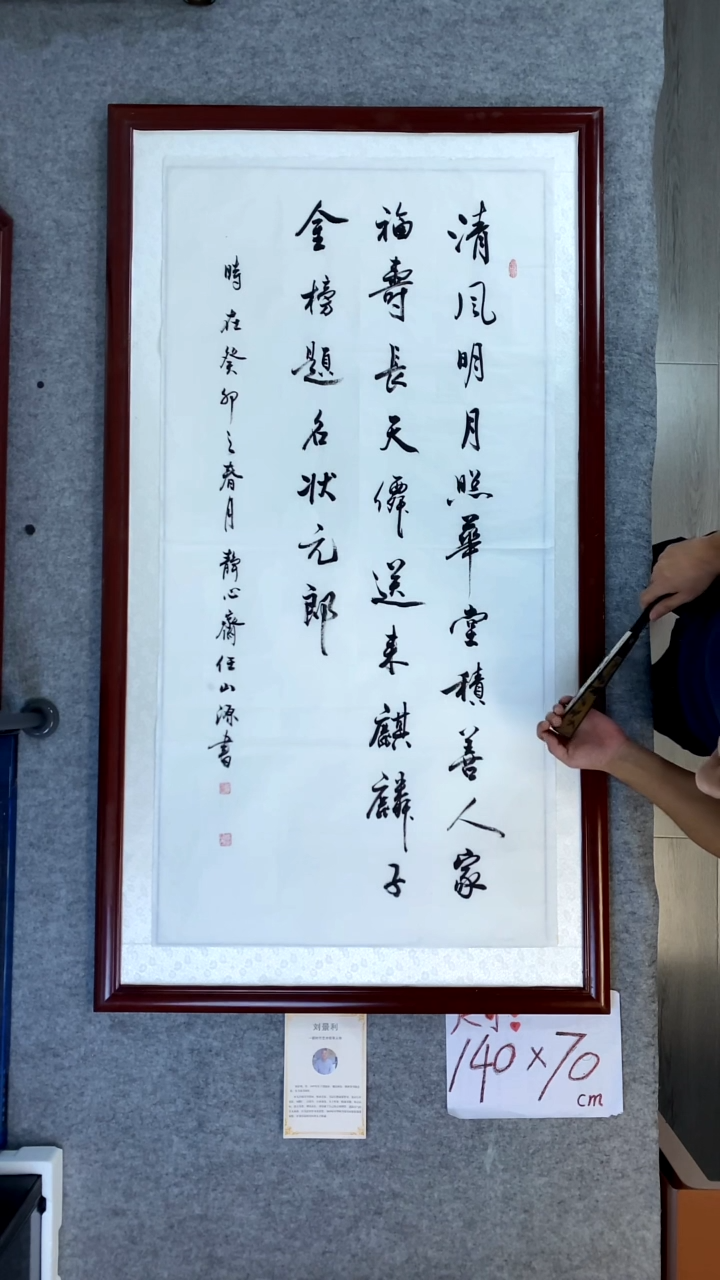 清風明月照華堂積善人家
福壽長天僊送来麒麟子
金榜題名状元郎
時在癸卯之春月靜心齋任山源書
刘景利
140×70
cm